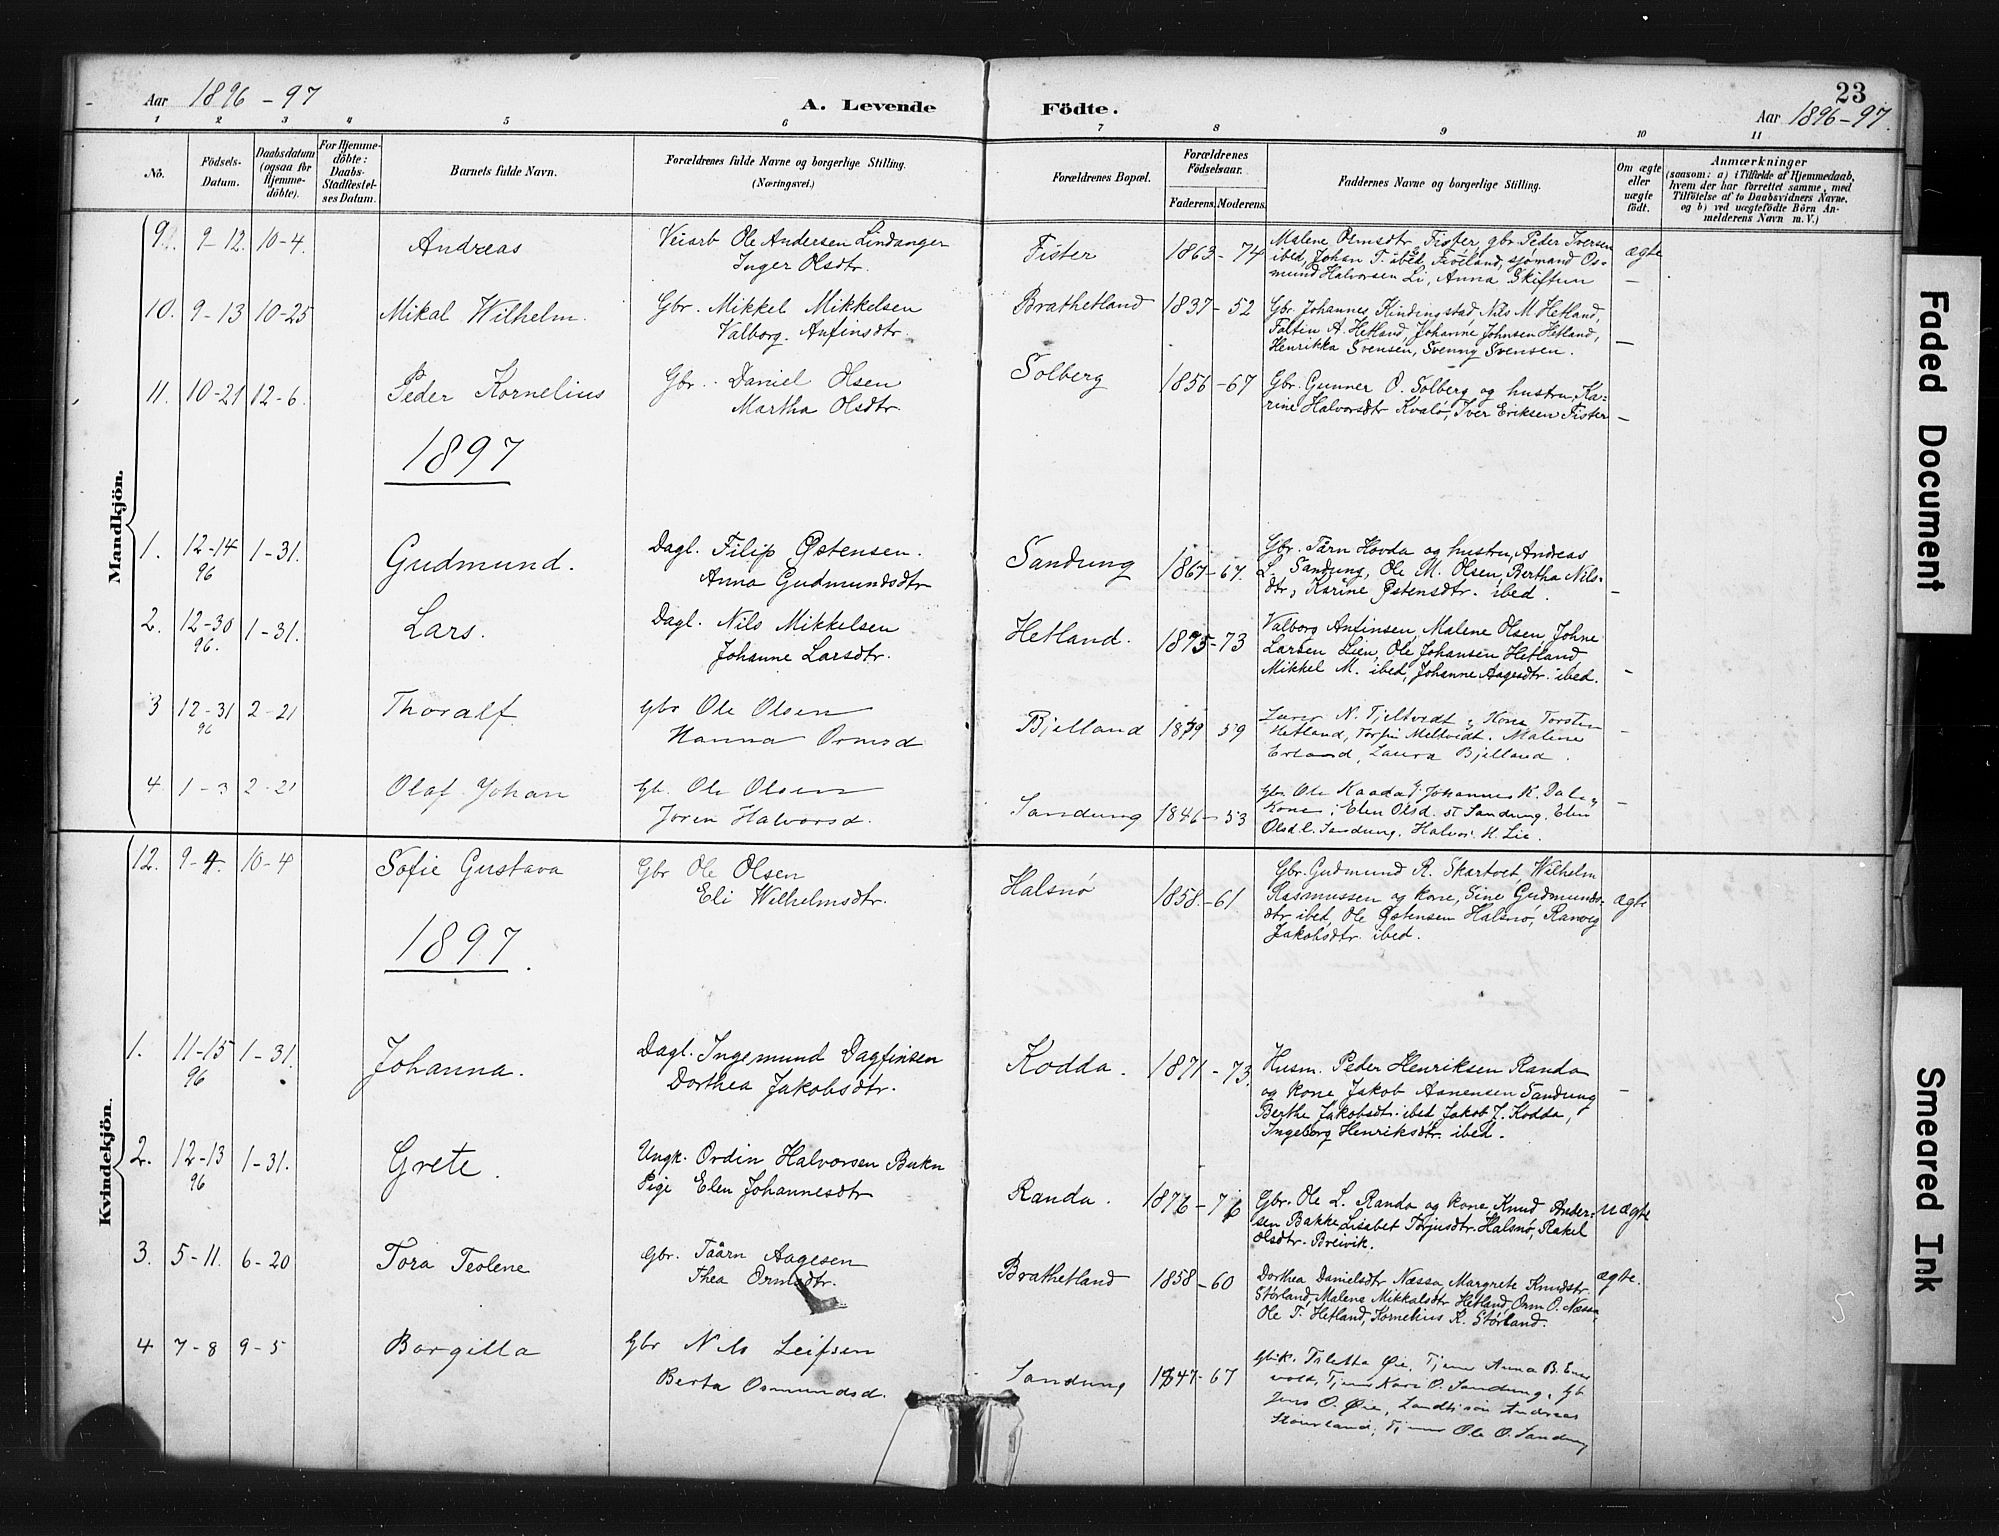 23
Aar 1896-97 A. Levende Födte. Aar 1896-97.
1 2 3 4 5 6 7 8 9 10 11
No. Födsels-Datum. Daabsdatum (ogsaa for Hjemmedöbte). For Hjemmedöbte: Daabs-Stadfæstelses Datum. Barnets fulde Navn. Forældrenes fulde Navne og borgerlige Stilling. (Næringsvei.) Forældrenes Bopæl. Forældrenes Födselsaar. Faderens. Moderens. Faddernes Navne og borgerlige Stilling. Om ægte eller uægte födt. Anmærkninger (saasom: a) i Tilfælde af Hjemmedaab, hvem der har forrettet samme, med Tilföielse af to Daabsvidners Navne, og b) ved uægtefödte Börn Anmelderens Navn m.V.)
Mandkjön.
9. 9-12 10-4. Andreas Ole Andersen Lindanger Fister 1863-74 Malene Ormsdtr. Fister, gbr. Peder Iversen ægte
Inger Olsdtr. ibed, Johan T. ibed, sjømand Os-
mund Halvorsen Li, Anna Skiftun —
10. 9-13 10-25 Mikal Wilhelm. Gbr. Mikkel Mikkelsen Brathetland 1837-52 Gbr. Johannes Kindingstad Nils M Hetland,
Valborg Anfinsdtr. A. Hetland, Johanne Johnsen Hetland,
Henrikka Svensen, Svenny Svensen. —
11. 10-21 12-6. Peder Kornelius Gbr. Daniel Olsen Solberg 1856-67 Gbr. Gunner O. Solberg og hustru Ka-
Martha Olsdtr. rine Halvorsdtr Kvalø, Iver Eriksen Fister —
1897
1. 12-14 96 1-31. Gudmund. Dagl. Filip Østensen. Sandung 1867-67. Gbr. Tårn Hovda og hustru, Andreas
Anna Gudmundsdtr L. Sandung, Ole M. Olsen, Bertha Nils-
dtr, Karine Østensdtr. ibed. —
2. 12-30 96. 1-31. Lars. Dagl. Nils Mikkelsen Hetland. 1875-73 Valborg Anfinsen, Malene Olsen, Johne
Johanne Larsdtr. Larsen Lien, Ole Johansen Hetland
Mikkel M. ibed, Johanne Aagesdtr. ibed. —
3 12-31 96 2-21 Thoralf. Gbr Ole Olsen Bjelland 59 N. Tjeltvedt, Kone Torsten
Hanna Ormsd Hetland, Malene
Laura Bjelland. —
4. 1-3 2-21 Olaf Johan Gb. Ole Olsen Sandung 1846-53 Gbr. Ole Kaada, Johannes K. Dale,
Joren Halvorsd. Kone, Elen Olsd. st Sandung, Elen
Olsd. l. Sandung, Halvor H. Lie. —
Kvindekjön.
12. 9-4. 10-4 Sofie Gustava Gbr Ole Olsen Halsnø 1858-61. Gbr. Gudmund R. Skartvet, Wilhelm ægte
Eli Wilhelmsdtr. Rasmussen og kone, Sine Gudmunds-
dtr ibed, Ole Østensen Halsnø, Ranveig
Jakobsdtr. ibed.
1897.
1. 11-15 96 1-31. Johanna. Dagl. Ingemund Dagfinsen Kodda. 1871-73. Husm. Peder Henriksen Randa —
Dorthea Jakobsdtr. og kone, Jakob Asnensen Sandung
Berthe Jakobsdtr. ibed Jakob J. Kodda,
Ingeborg Henriksdtr. ibed.
2. 12-13 96 1-31. Grete. Ungk. Ordin Halvorsen Bukn Randa. 1876-76 Gbr. Ole L. Randa og kone, Knud Ander- uægte
Pige Elen Johannesdtr sen Bakke, Lisabet Torjusdtr. Halsnø, Rakel
Olsdtr. Breivik.
3. 5-11. 6-20 Tora Teolene Gbr. Taårn Aagesen Brathetland 1858-60 Dorthea Danielsdtr Næssa, Margrete Knudstr. ægte.
Thea Ormsdtr. Størland, Malene Mikkalsdtr Hetland, Orm O. Næssa
Ole T. Hetland, Kornelius K. Størland.
4 7-8 9-5 Borgilla Gbr Nils Leifsen Sandung 1847-67 Øie, Tjener Anna B.
Berta Osmundsd. Tjener Kari O. Sandung, Gb
Jens O. Øie, Andreas
Stourland, Tjener Ole O. Sandung
Faded Document
Smeared Ink